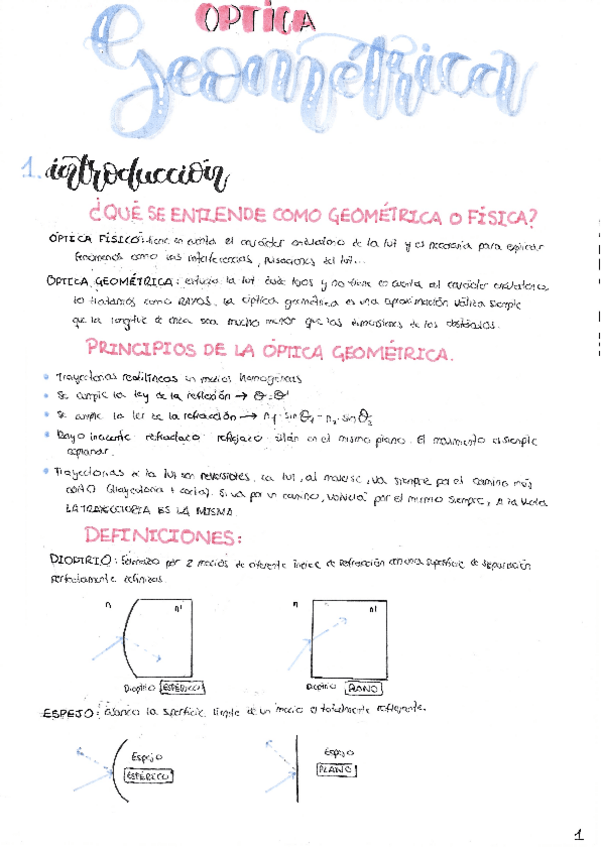 OPTICA
Geométrica
1. introducción
¿QUÉ SE ENTIENDE COMO GEOMÉTRICA O FÍSICA?
ÓPTICA FÍSICA: tiene en cuenta el carácter ondulatorio de la luz y es necesaria para explicar
fenómenos como las interferencias, de la luz...
ÓPTICA GEOMÉTRICA: estudia la luz y no tiene en cuenta el carácter ondulatorio,
lo tratamos como RAYOS. La óptica geométrica es una aproximación válida siempre
que la longitud de onda sea mucho menor que las dimensiones de los obstáculos.
PRINCIPIOS DE LA ÓPTICA GEOMÉTRICA.
• Trayectorias rectilíneas en medios homogéneos
• Se cumple la ley de la reflexión → θ = θ'
• Se cumple la ley de la refracción → n₁ · sin θ₁ = n₂ · sin θ₂
• Rayo incidente refractado reflejado están en el mismo plano. El movimiento es siempre
coplanar.
• Trayectorias de la luz son reversibles. La luz, al moverse, va siempre por el camino más
corto (trayectoria + corta). Si va por un camino, volverá por el mismo siempre, a la vuelta
LA TRAYECTORIA ES LA MISMA.
DEFINICIONES:
DIOPTRIO: formado por 2 medios de diferente índice de refracción con una superficie de separación
perfectamente definida.
n n' n n'
Dioptrio ESFÉRICO Dioptrio PLANO
ESPEJO: cuando la superficie límite de un medio es totalmente reflejante.
Espejo Espejo
ESFÉRICO PLANO
1